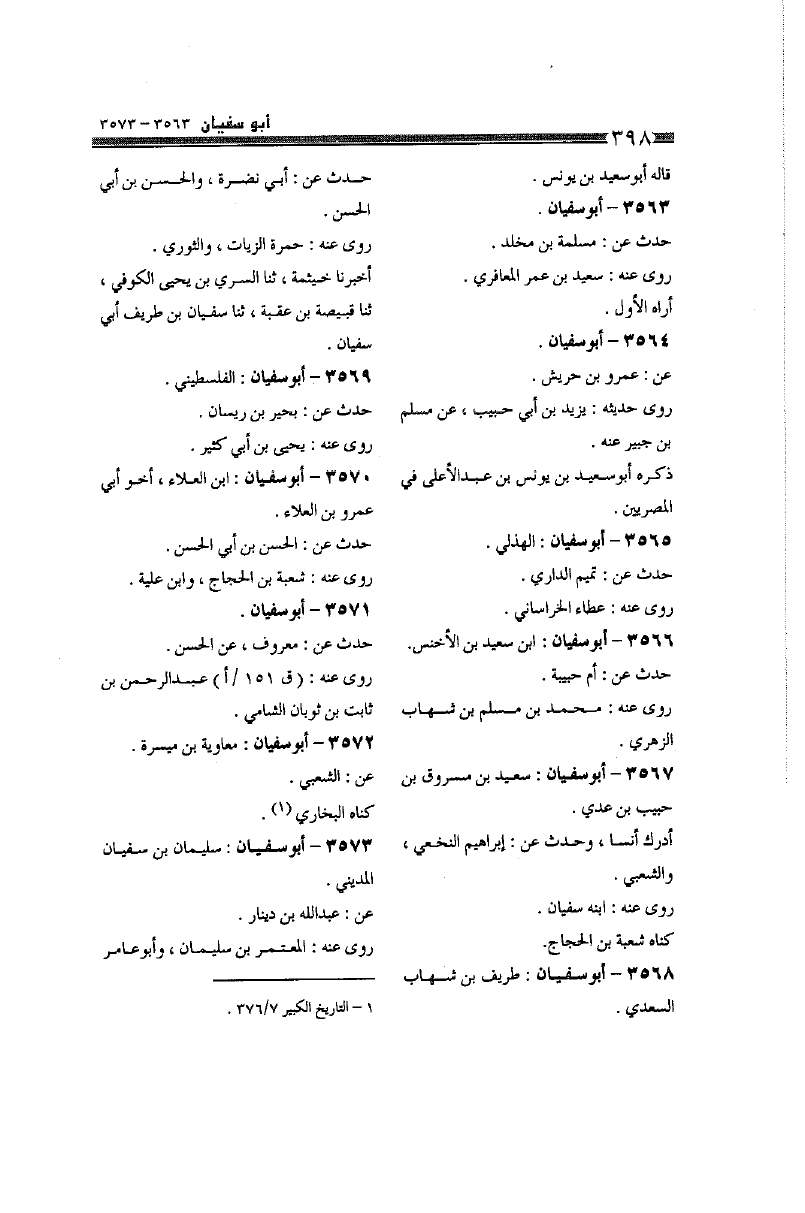 أبو سفيان ٣٥٦٣ – ٣٥٧٣
٣٩٨
قاله أبوسعيد بن يونس .
٣٥٦٣ – أبوسفيان .
حدث عن : مسلمة بن مخلد .
روى عنه : سعيد بن عمر المعافري .
أراه الأول .
٣٥٦٤ – أبوسفيان .
عن : عمرو بن حريش .
روى حديثه : يزيد بن أبي حبيب ، عن مسلم
بن جبير عنه .
ذكره أبوسعيد بن يونس بن عبدالأعلى في
المصريين .
٣٥٦٥ – أبوسفيان : الهذلي .
حدث عن : تميم الداري .
روى عنه : عطاء الخراساني .
٣٥٦٦ – أبوسفيان : ابن سعيد بن الأخنس.
حدث عن : أم حبيبة .
روى عنه : محمد بن مسلم بن شهاب
الزهري .
٣٥٦٧ – أبوسفيان : سعيد بن مسروق بن
حبيب بن عدي .
أدرك أنسا ، وحدث عن : إبراهيم النخعي ،
والشعبي .
روى عنه : ابنه سفيان .
كناه شعبة بن الحجاج.
٣٥٦٨ – أبوسفيان : طريف بن شهاب
السعدي .
حدث عن : أبي نضرة ، والحسن بن أبي
الحسن .
روى عنه : حمرة الزيات ، والثوري .
أخبرنا خيثمة ، ثنا السري بن يحيى الكوفي ،
ثنا قبيصة بن عقبة ، ثنا سفيان بن طريف أبي
سفيان .
٣٥٦٩ – أبوسفيان : الفلسطيني .
حدث عن : بحير بن ريسان .
روى عنه : يحيى بن أبي كثير .
٣٥٧٠ – أبوسفيان : ابن العلاء ، أخو أبي
عمرو بن العلاء .
حدث عن : الحسن بن أبي الحسن .
روى عنه : شعبة بن الحجاج ، وابن علية .
٣٥٧١ – أبوسفيان .
حدث عن : معروف ، عن الحسن .
روى عنه : ( ق ١٥١ /أ ) عبدالرحمن بن
ثابت بن ثوبان الشامي .
٣٥٧٢ – أبوسفيان : معاوية بن ميسرة .
عن : الشعبي .
كناه البخاري (١) .
٣٥٧٣ – أبوسفيان : سليمان بن سفيان
المديني .
عن : عبدالله بن دينار .
روى عنه : المعتمر بن سليمان ، وأبوعامر
١ – التاريخ الكبير ٣٧٦/٧ .